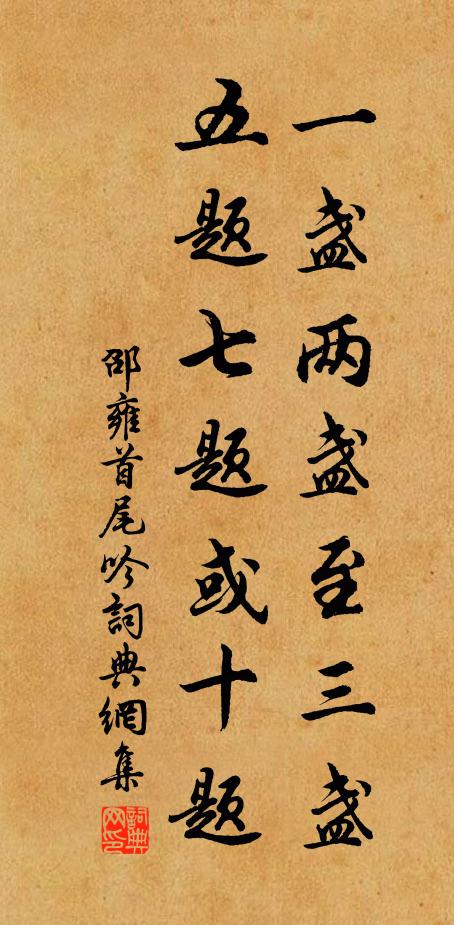 一盏两盏至三盏
五题七题或十题
邵雍首尾吟詞典網集
詞典网印